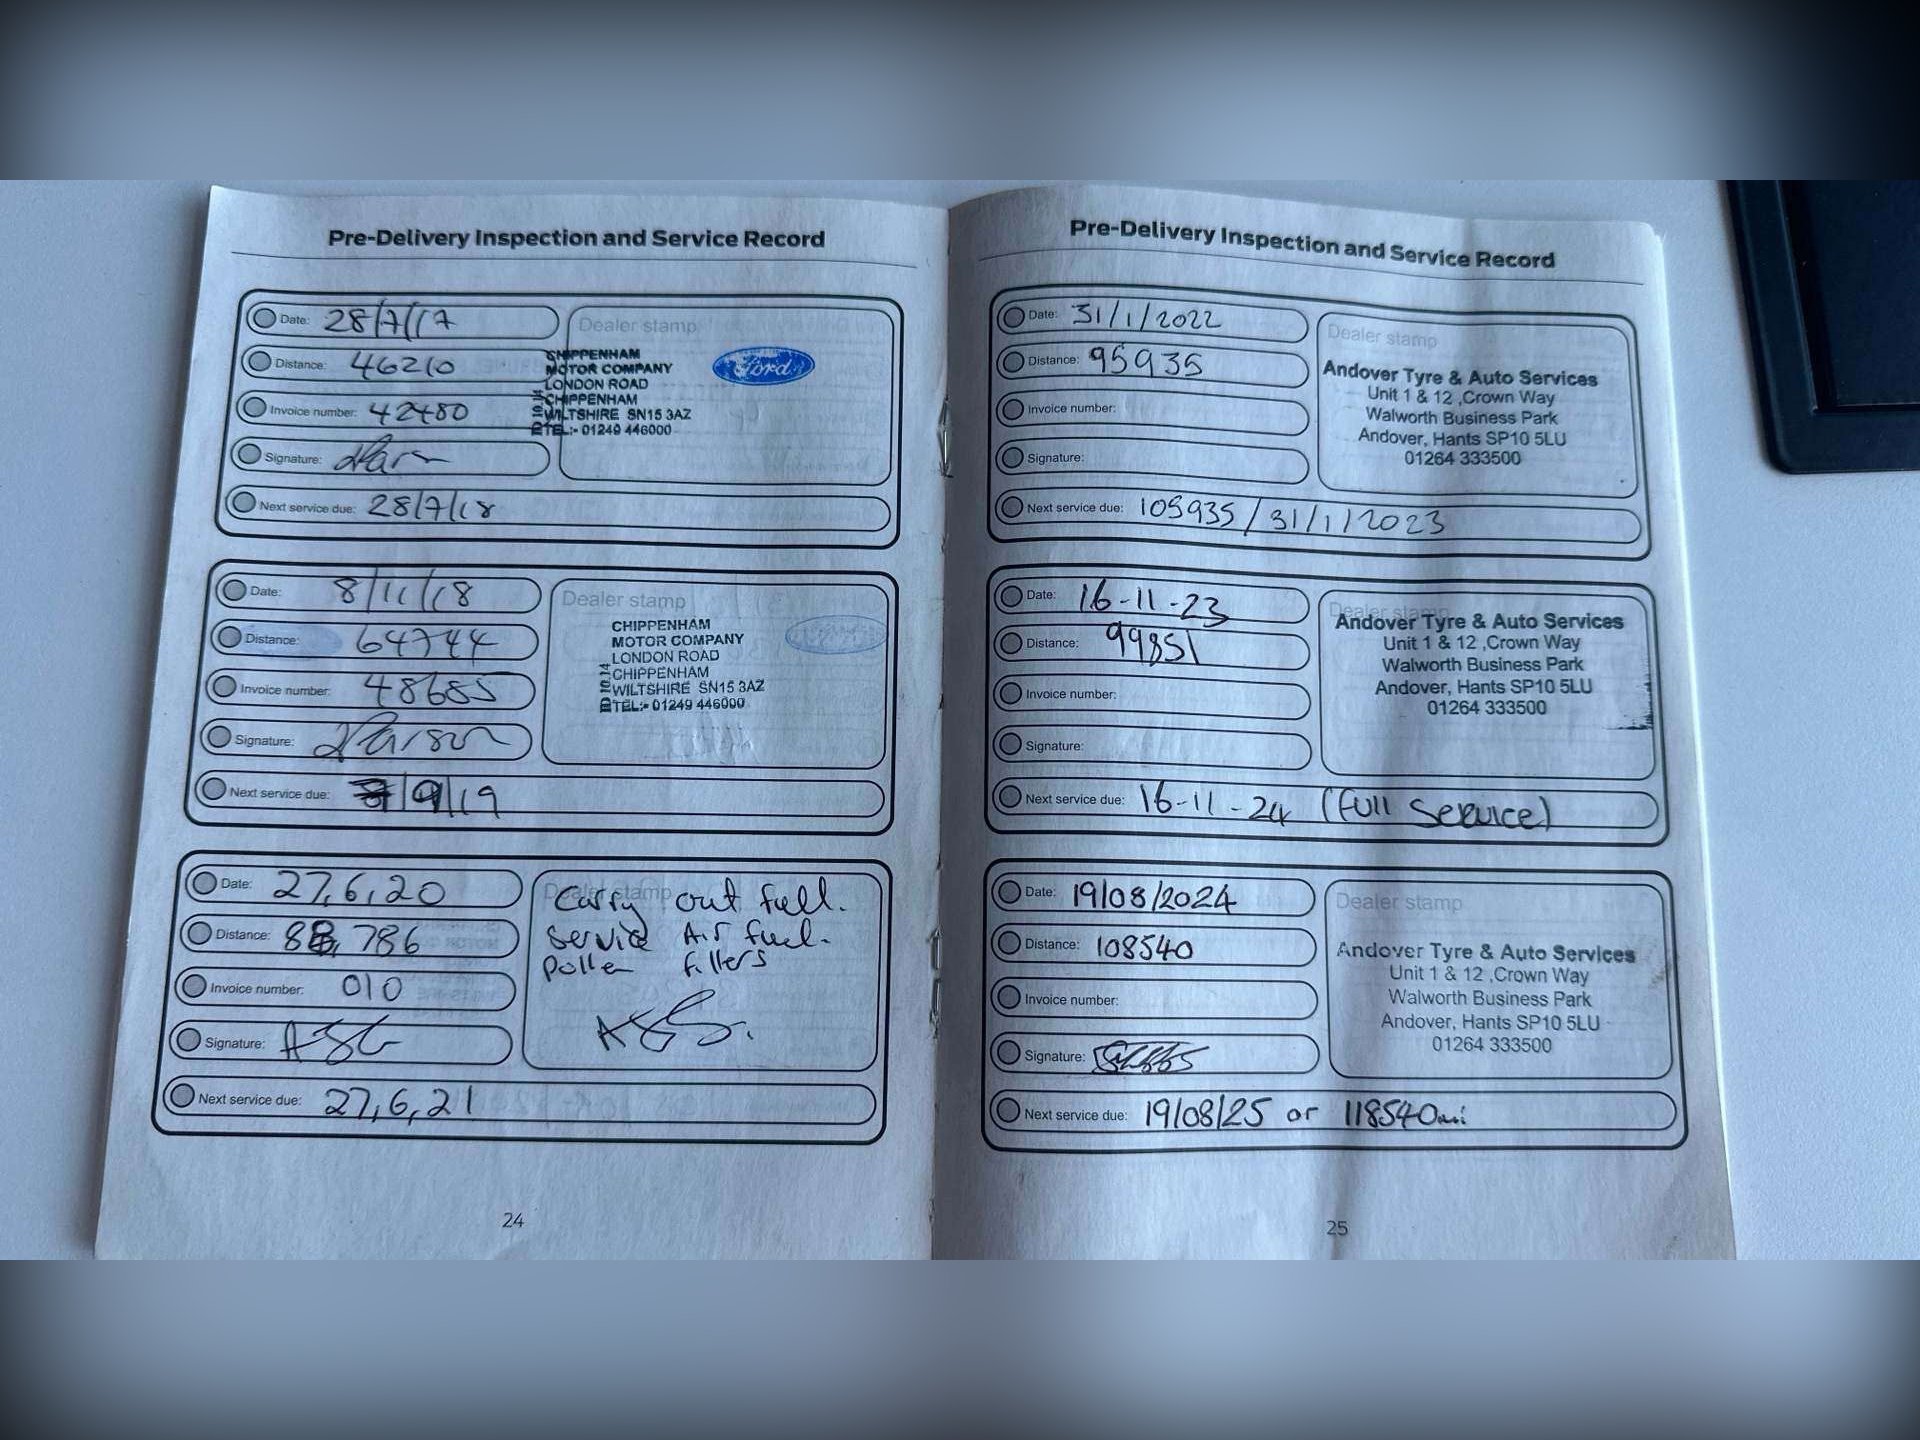 Pre-Delivery Inspection and Service Record
Date: 28/7/17
Distance: 46210
Invoice number: 42480
Signature:
Next service due: 28/7/18
Dealer stamp
CHIPPENHAM
MOTOR COMPANY
LONDON ROAD
CHIPPENHAM
WILTSHIRE SN15 3AZ
TEL:- 01249 446000
Ford
Date: 8/11/18
Distance: 64744
Invoice number: 48685
Signature:
Next service due: /9/19
Dealer stamp
CHIPPENHAM
MOTOR COMPANY
LONDON ROAD
CHIPPENHAM
WILTSHIRE SN15 3AZ
TEL:- 01249 446000
Date: 27,6,20
Distance: 88,786
Invoice number: 010
Signature:
Next service due: 27,6,21
Dealer stamp
Carry out full.
service Air fuel.
pollen fillers
24
Pre-Delivery Inspection and Service Record
Date: 31/1/2022
Distance: 95935
Invoice number:
Signature:
Next service due: 105935 / 31/1/2023
Dealer stamp
Andover Tyre & Auto Services
Unit 1 & 12 ,Crown Way
Walworth Business Park
Andover, Hants SP10 5LU
01264 333500
Date: 16-11-23
Distance: 99851
Invoice number:
Signature:
Next service due: 16-11-24 (Full Service)
Dealer stamp
Andover Tyre & Auto Services
Unit 1 & 12 ,Crown Way
Walworth Business Park
Andover, Hants SP10 5LU
01264 333500
Date: 19/08/2024
Distance: 108540
Invoice number:
Signature:
Next service due: 19/08/25 or 118540mi
Dealer stamp
Andover Tyre & Auto Services
Unit 1 & 12 ,Crown Way
Walworth Business Park
Andover, Hants SP10 5LU
01264 333500
25